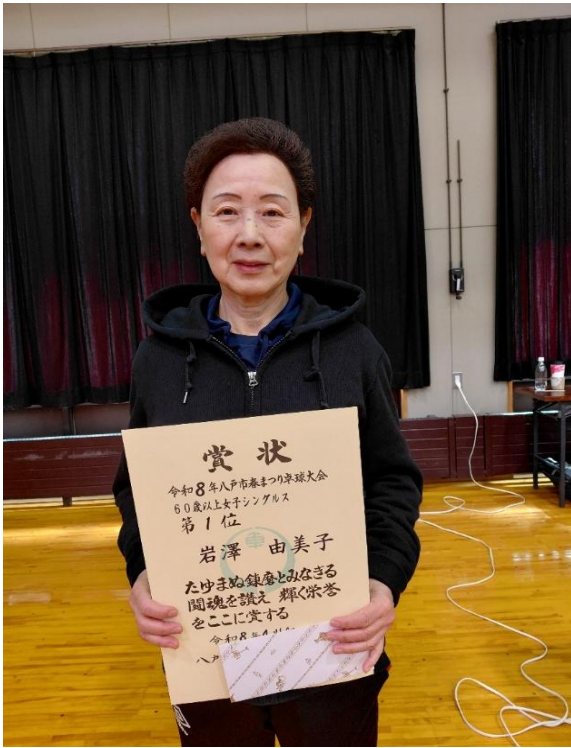 賞状
令和8年八戸市春まつり卓球大会
60歳以上女子シングルス
第1位
岩澤 由美子
たゆまぬ錬磨とみなぎる
闘魂を讃え 輝く栄誉
をここに賞する
令和8年4月
八戸